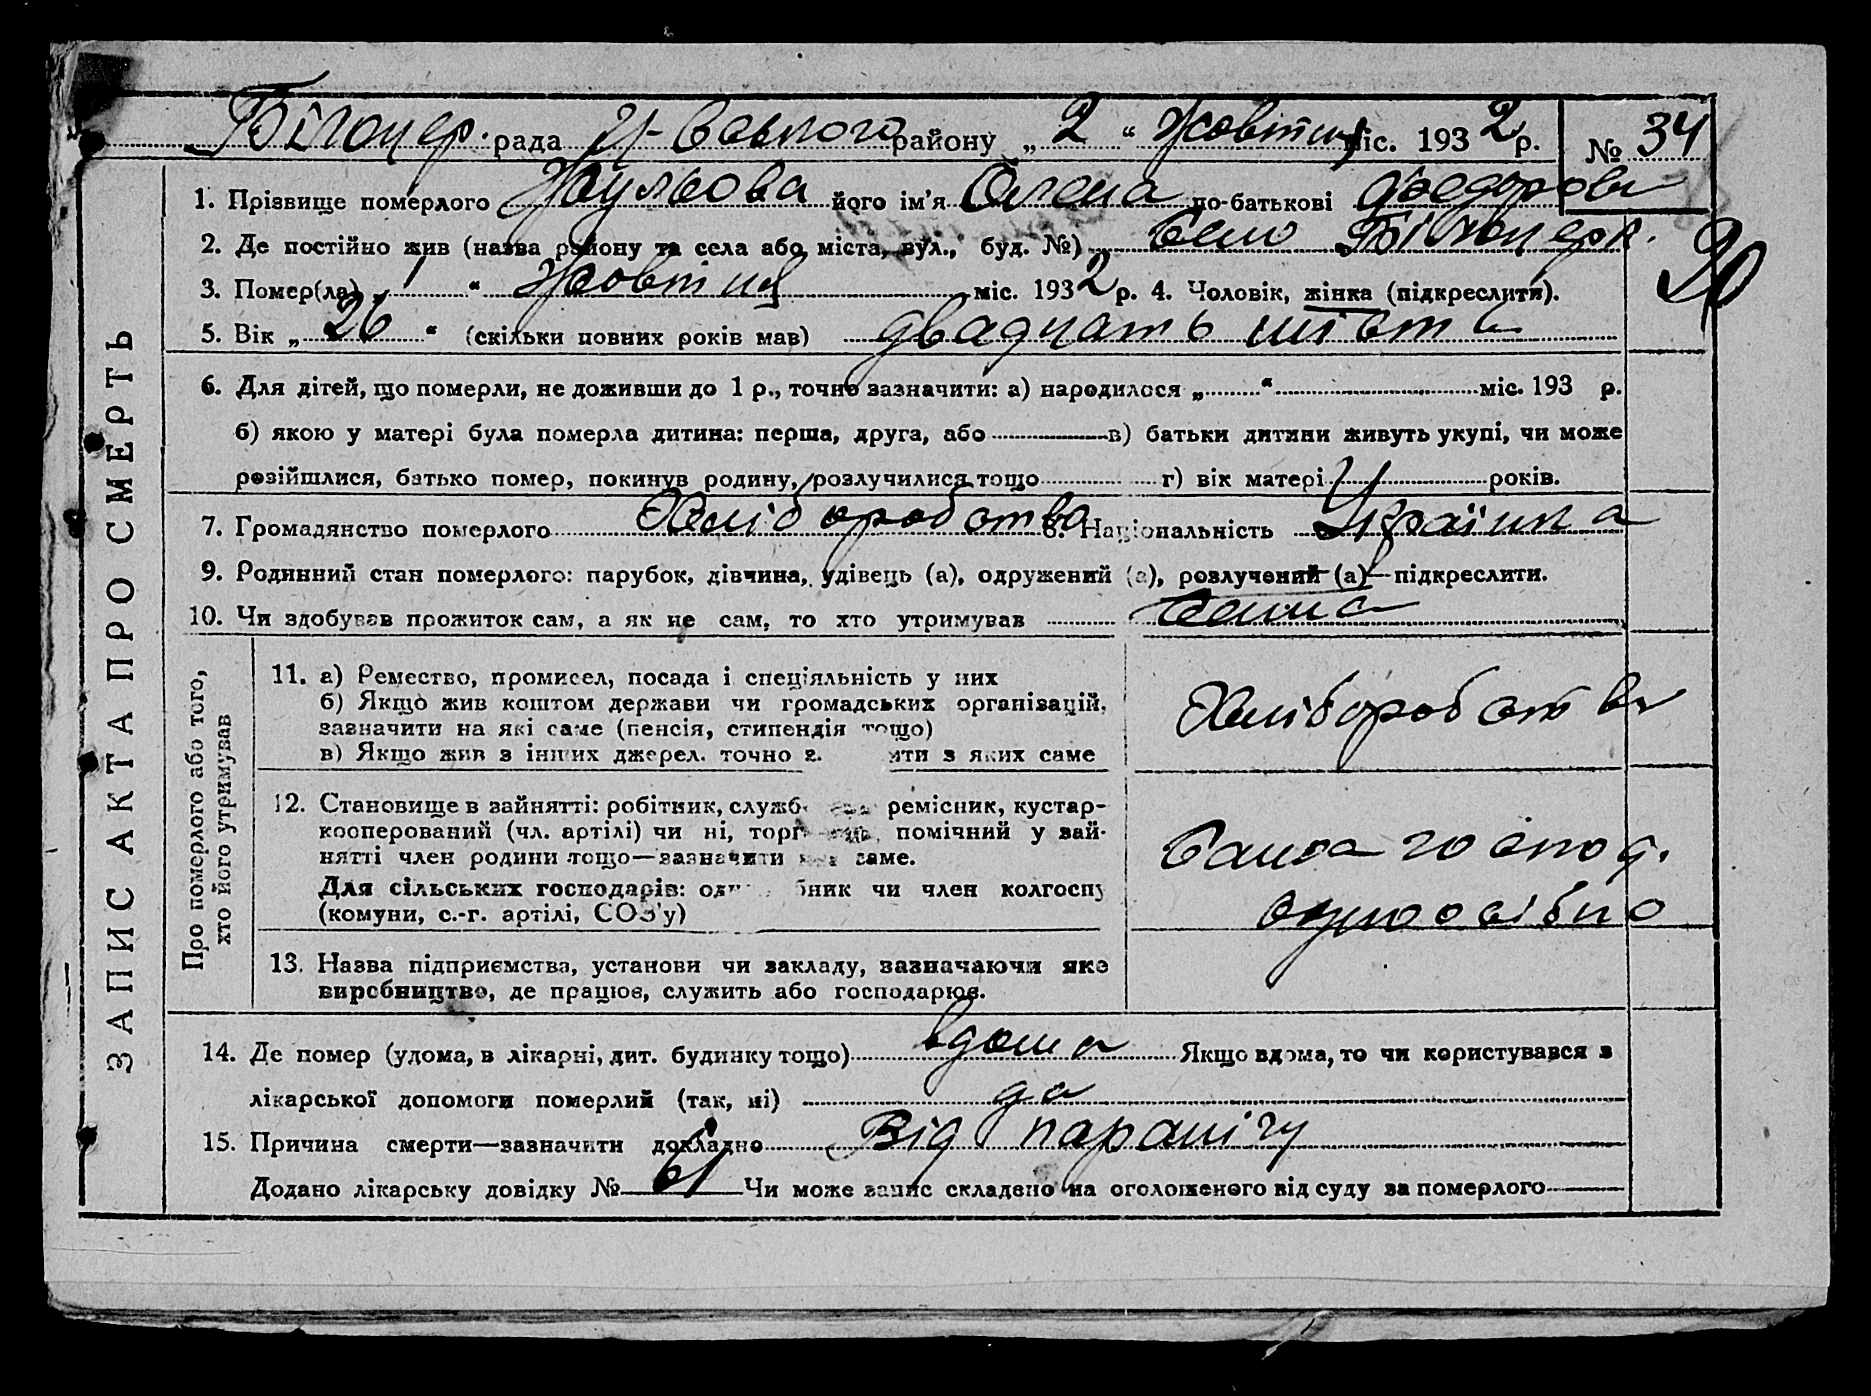 Білоцер. рада района „ 2 “ Жовтня міс. 1932 р. № 34
1. Прізвище померлого його ім'я Олена по-батькові Федорова
2. Де постійно жив (назва району та села або міста, вул., буд. №) Село Білоцерк.
20
3. Помер(ла) 1 “ Жовтня міс. 1932 р. 4. Чоловік, жінка (підкреслити).
5. Вік „ 26 “ (скільки повних років мав) двадцать шість
6. Для дітей, що померли, не доживши до 1 р., точно зазначити: а) народилося „ “ міс. 193 р.
б) якою у матері була померла дитина: перша, друга, або в) батьки дитини живуть укупі, чи може
розійшлися, батько помер, покинув родину, розлучилися тощо г) вік матері років.
7. Громадянство померлого Хліборобство 8. Національність Українка
9. Родинний стан померлого: парубок, дівчина, удівець (а), одружений (а), розлучений (а)—підкреслити.
10. Чи здобував прожиток сам, а як не сам, то хто утримував Сама
ЗАПИС АКТА ПРО СМЕРТЬ
Про померлого або того,
хто його утримував
11. а) Ремество, промисел, посада і спеціяльність у них
б) Якщо жив коштом держави чи громадських організацій,
зазначити на які саме (пенсія, стипендія тощо)
в) Якщо жив з інших джерел. точно з з яких саме
Хліборобств
12. Становище в зайнятті: робітник, служб ремісник, кустар-
кооперований (чл. артілі) чи ні, торг помічний у зай-
нятті член родини тощо—зазначити саме.
Для сільських господарів: од бник чи член колгоспу
(комуни, с.-г. артілі, СОЗ'у)
Сама господ.
одноосібно
13. Назва підприємства, установи чи закладу, зазначаючи яке
виробництво, де працює, служить або господарює.
14. Де помер (удома, в лікарні, дит. будинку тощо) вдома Якщо вдома, то чи користувався з
лікарської допомоги померлий (так, ні) да
15. Причина смерти—зазначити докладно Від паралічу
Додано лікарську довідку № 61 Чи може запис складено на оголошеного від суду за померлого